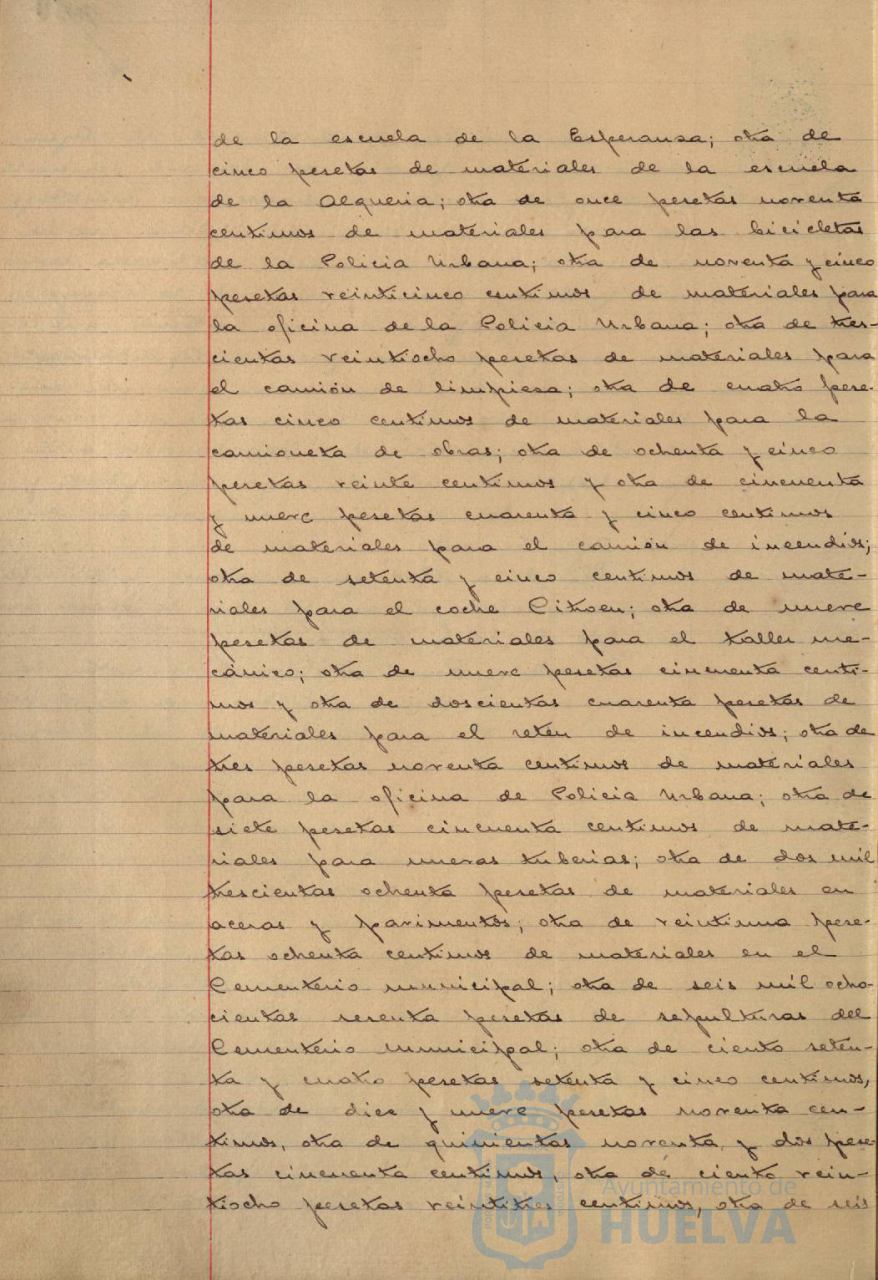 de la escuela de la Esperansa; otra de
cinco pesetas de materiales de la escuela
de la Alqueria; otra de once pesetas noventa
centimos de materiales para las bicicletas
de la Policia Urbana; otra de noventa y cinco
pesetas veinticinco centimos de materiales para
la oficina de la Policia Urbana; otra de tres-
cientas veintiocho pesetas de materiales para
el camión de limpiesa; otra de cuatro pese-
tas cinco centimos de materiales para la
camioneta de obras; otra de ochenta y cinco
pesetas veinte centimos y otra de cincuenta
y nueve pesetas cuarenta y cinco centimos
de materiales para el camión de incendios;
otra de setenta y cinco centimos de mate-
riales para el coche Citroen; otra de nueve
pesetas de materiales para el taller me-
cánico; otra de nueve pesetas cincuenta centi-
mos y otra de doscientas cuarenta pesetas de
materiales para el reten de incendios; otra de
tres pesetas noventa centimos de materiales
para la oficina de Policia Urbana; otra de
siete pesetas cincuenta centimos de mate-
riales para nuevas tuberias; otra de dos mil
trescientas ochenta pesetas de materiales en
aceras y pavimentos; otra de veintiuna pese-
tas ochenta centimos de materiales en el
Cementerio municipal; otra de seis mil ocho-
cientas sesenta pesetas de sepulturas del
Cementerio Municipal; otra de ciento seten-
ta y cuatro pesetas setenta y cinco centimos,
otra de diez y nueve pesetas noventa cen-
timos, otra de quinientas noventa y dos pese-
tas cincuenta centimos, otra de ciento vein-
tiocho pesetas veintitres centimos, otra de seis
Ayuntamiento de
HUELVA